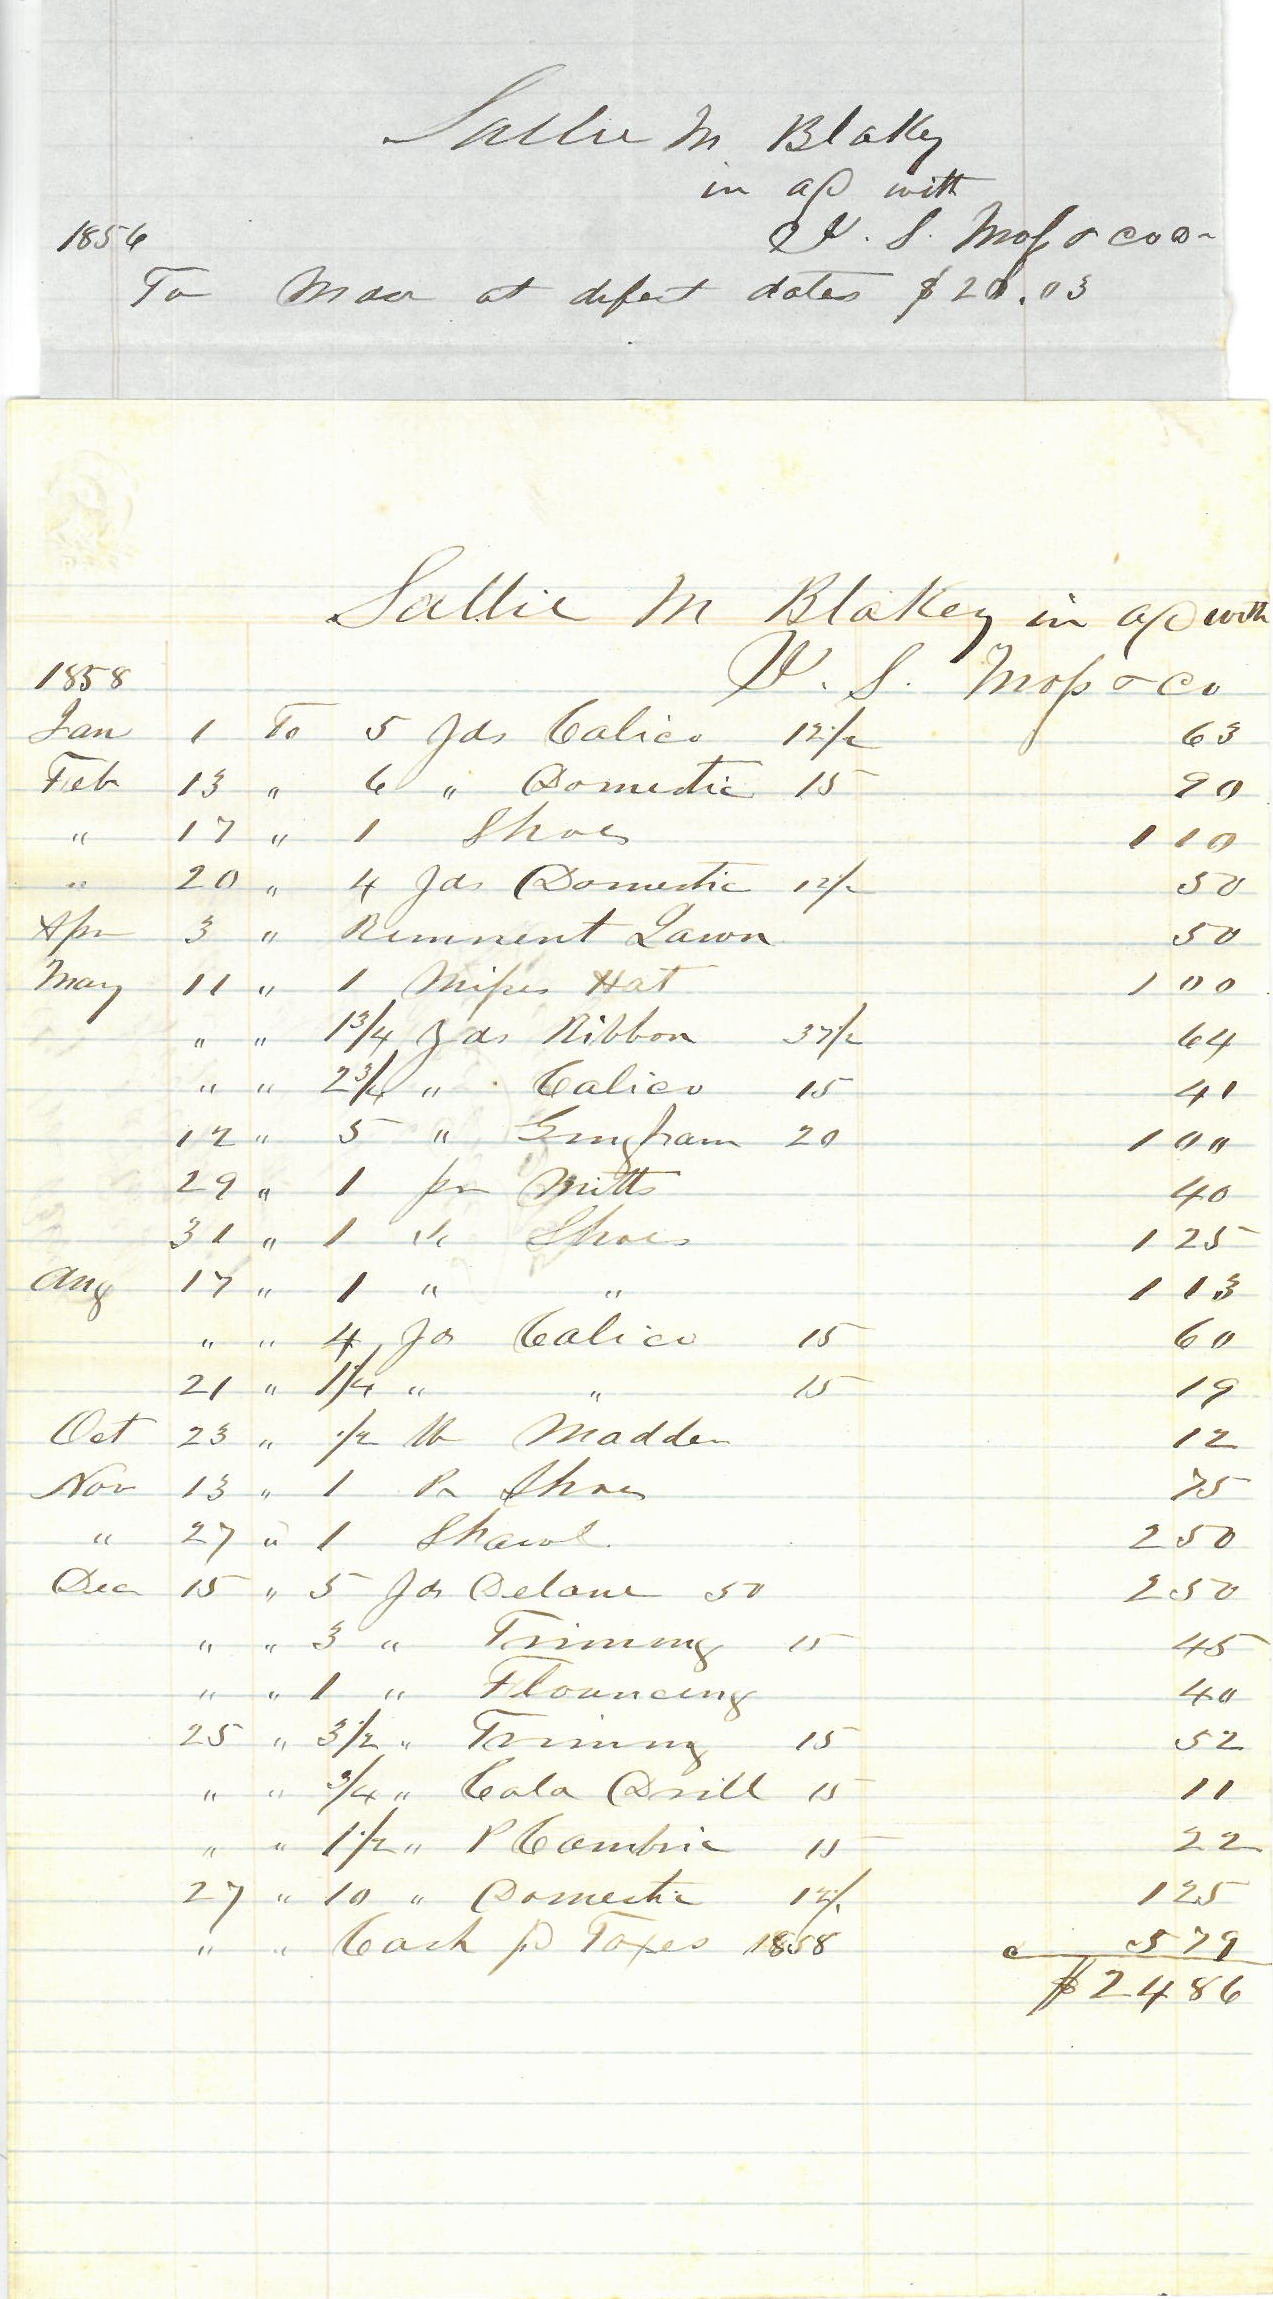 Sallie M Blakey
in a/c with
W. S. Moss & co
1856
To Mdse at difect dates $20.03
Sallie M Blakey in a/c with
1858 W. S. Moss & Co
Jan 1 To 5 Yds Calico 12 1/2 63
Feb 13 " 6 " Domestic 15 90
" 17 " 1 Shoes 1 10
" 20 " 4 Yds Domestic 12 1/2 50
Apr 3 " Remnent Lawn 50
May 11 " 1 Misses Hat 1 00
" " 1 3/4 Yds Ribbon 37 1/2 64
" " 2 3/4 " Calico 15 41
12 " 5 " Gingham 20 1 00
29 " 1 pr Mitts 40
31 " 1 " Shoes 1 25
Aug 17 " 1 " " 1 13
" " 4 Yds Calico 15 60
21 " 1 1/4 " " 15 19
Oct 23 " 1/2 lb Madder 12
Nov 13 " 1 Pr Shoes 75
" 27 " 1 Shawl 2 50
Dec 15 " 5 Yds Delane 50 2 50
" " 3 " Trimmg 15 45
" " 1 " Flouncing 40
25 " 3 1/2 " Trimmg 15 52
" " 3/4 " Cold Drill 15 11
" " 1 1/2 " P Cambric 15 22
27 " 10 " Domestic 12 1/2 1 25
" " Cash pd Taxes 1858 5 79
$24 86